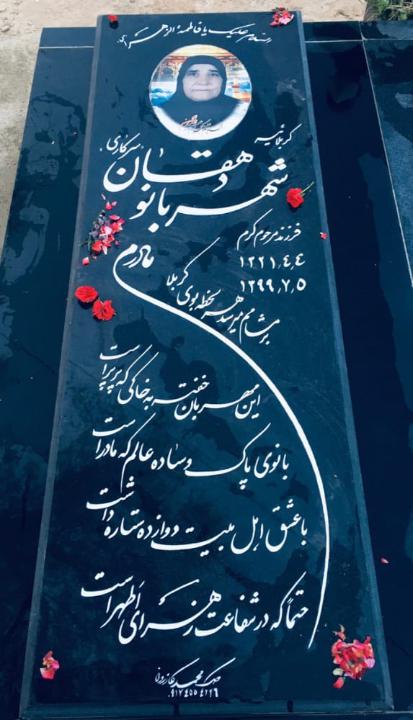 السلام علیک یا فاطمة الزهرا
کربلائیه
شهربانو دهقان سرکاری
فرزند مرحوم کرم
۱۲۲۱٫۴٫۴
۱۲۹۹٫۷٫۵
مادرم
بر مشامم میرسد هر لحظه بوی کربلا
این مهربان خفته به خاکی که پرپر است
بانوی پاک و ساده عالم که مادر است
با عشق اهل بیت دوازده ستاره داشت
حتما که در شفاعت زهرای اطهر است
۰۹۱۷۴۵۵۴۲۲۶